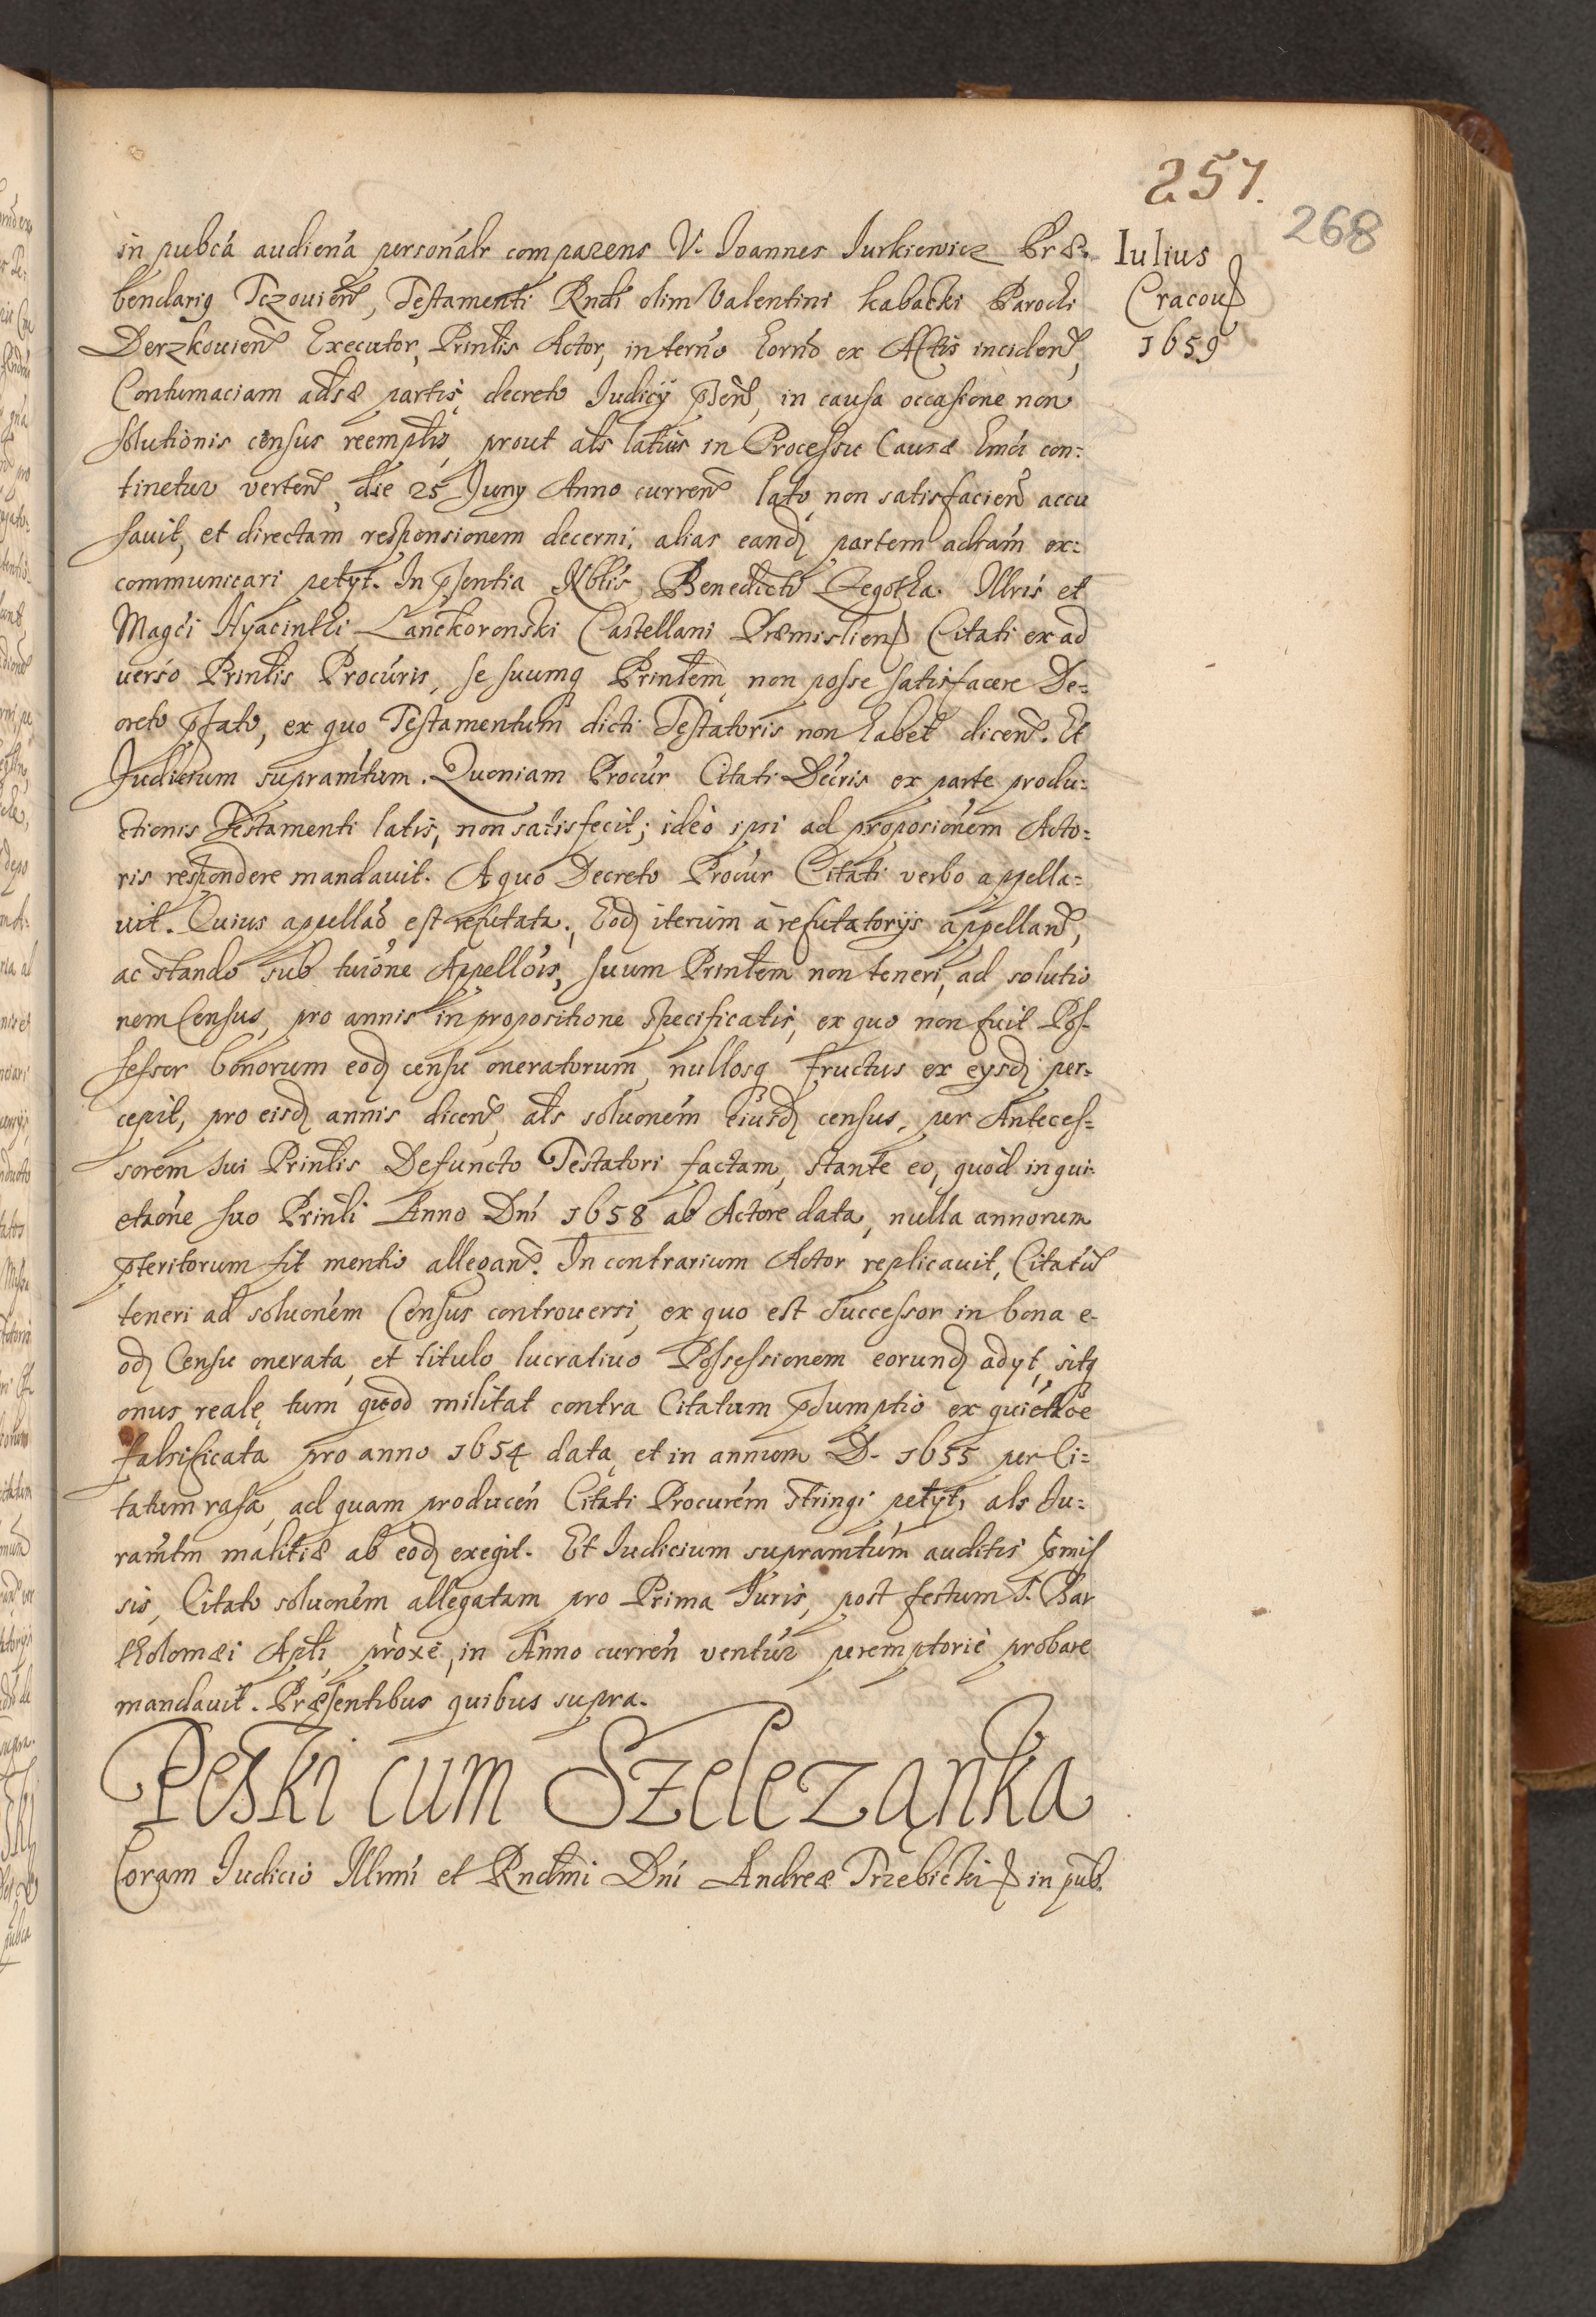 257.
268
Iulius
Cracou
1659
in pubcá audiená personálr comparens V. Joannes Jurkiewicz Præ-
bendarig Tczouień, Testamenti Rndi olim Valentini kabacki Parochi
Derzkouień Executor, Prinlis Actor, in terno hornó ex Actis inciden,
Contumaciam adsæ partis, decreto Judicÿ psen, in causa occasione non
solutionis census reemplis, prout als latius in Processu Causæ hmoi con:
tinetur verten, die 25 Juny Anno curren lato, non satisfacien accu
sauit, et directam responsionem decerni, alias eand partem adsam ex:
communicari petyt. In psentia Nbtis Benedicti Zegotha. Illris et
Magci Hyacinthi Lanckoronski Castellani Præmislien Citati ex ad
uerso Prinlis Procuris, se suumq Prinlem, non posse satisfacere De=
creto pfato, ex quo Testamentum dicti Testatoris non habet dicen. Et
Judicium supramtum. Quoniam Procur Citati Decris ex parte produ:
ctionis Testamenti latis, non satisfecit; ideò ipsi ad proposionem Acto:
ris respondere mandauit. A quo Decreto Procur Citati verbo appella=
uit. Cuius appellaó est refutata. Eod iterum à refutatorijs appellan,
ac stando sub tuióne Appellóis, suum Prinlem non teneri, ad solutio
nem Census, pro annis in propositione specificatis, ex quo non fuit Pos-
sessor bonorum eod censu oneratorum, nullosq fructus ex eysd per-
cepit, pro eisd annis dicen, als soluonem eiusd census, per Anteces=
sorem sui Prinlis Defuncto Testatori factam, stante eo, quod in qui:
etaóne suo Prinli Anno Dni 1658 ab Actore data, nulla annorum
pteritorum fit mentio allegan. In contrarium Actor replicauit, Citatu
teneri ad soluonem Census controuersi, ex quo est Successor in bona e-
od Censu onerata, et titulo lucratiuo Possessionem eorund adyt, sitq
onus reale, tum quod militat contra Citatum psumptio ex quietaóe
falsificata pro anno 1654 data, et in annum D. 1655 per Ci=
tatum rasa, ad quam producen Citati Procurem stringi petyt, als Iu=
ramtm malitiæ ab eod exegit. Et Iudicium supramtum auditis pmis
sis, Citato soluonem allegatam pro Prima Iuris, post festum S. Bar
tholomæi Apli, próxe, in Anno curren ventur peremptoriè probare
mandauit. Præsentibus quibus supra.
Peski cum Szelezanka
Coram Judicio Illrmi et Rndmi Dni Andreæ Trzebicki in pub.